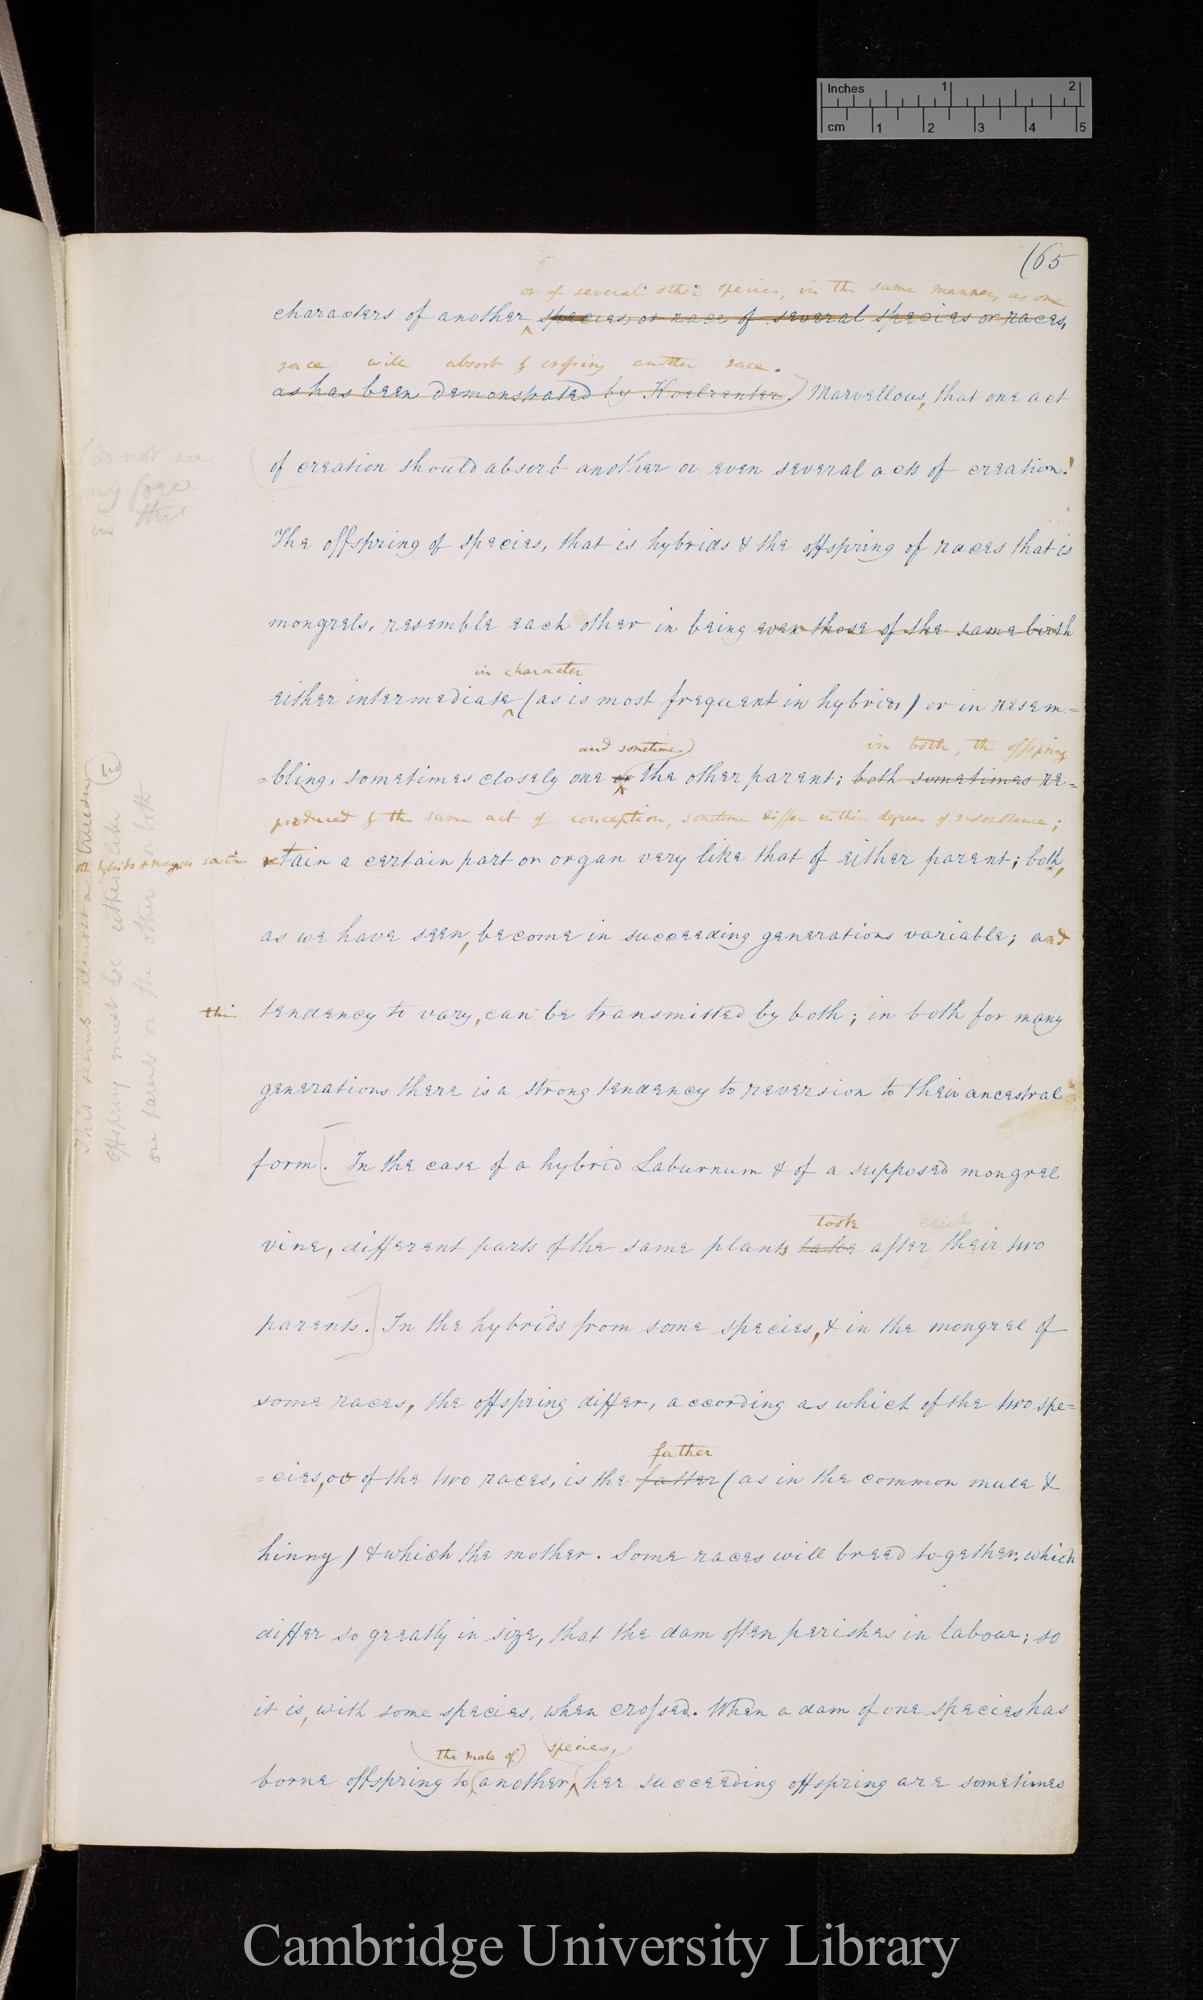 Inches 1 2
cm 1 2 3 4 5
(65
or of several other species, in the same manner, as one
characters of another species, or race of several species or races,
race will absorb by crossing another race.
as has been demonstrated by Koelreuter.) Marvellous, that one act
of creation should absorb another or even several acts of creation!
I do not see
any force
in this
The offspring of species, that is hybrids & the offspring of races that is
mongrels, resemble each other in being even those of the same birth
in character
either intermediate (as is most frequent in hybrids) or in resem=
and sometimes in both, the offspring
=bling, sometimes closely one or the other parent; both sometimes re=
produced by the same act of conception, sometimes differ in their degrees of resemblance;
both hybrids & mongrels sometimes retain a certain part or organ very like that of either parent; both,
as we have seen, become in succeeding generations variable; and
this tendency to vary, can be transmitted by both; in both for many
generations there is a strong tendency to reversion to their ancestral
form. [In the case of a hybrid Laburnum & of a supposed mongrel
took each of
vine, different parts of the same plants take after their two
parents.] In the hybrids from some species, & in the mongrel of
some races, the offspring differ, according as which of the two spe=
father
=cies, or of the two races, is the fatter (as in the common mule &
hinny) & which the mother. Some races will breed together, which
differ so greatly in size, that the dam often perishes in labour; so
it is, with some species, when crossed. When a dam of one species has
(the male of) species,
borne offspring to another, her succeeding offspring are sometimes
This seems almost a truism (E
offspring must be either like
one parent or the other or both
Cambridge University Library